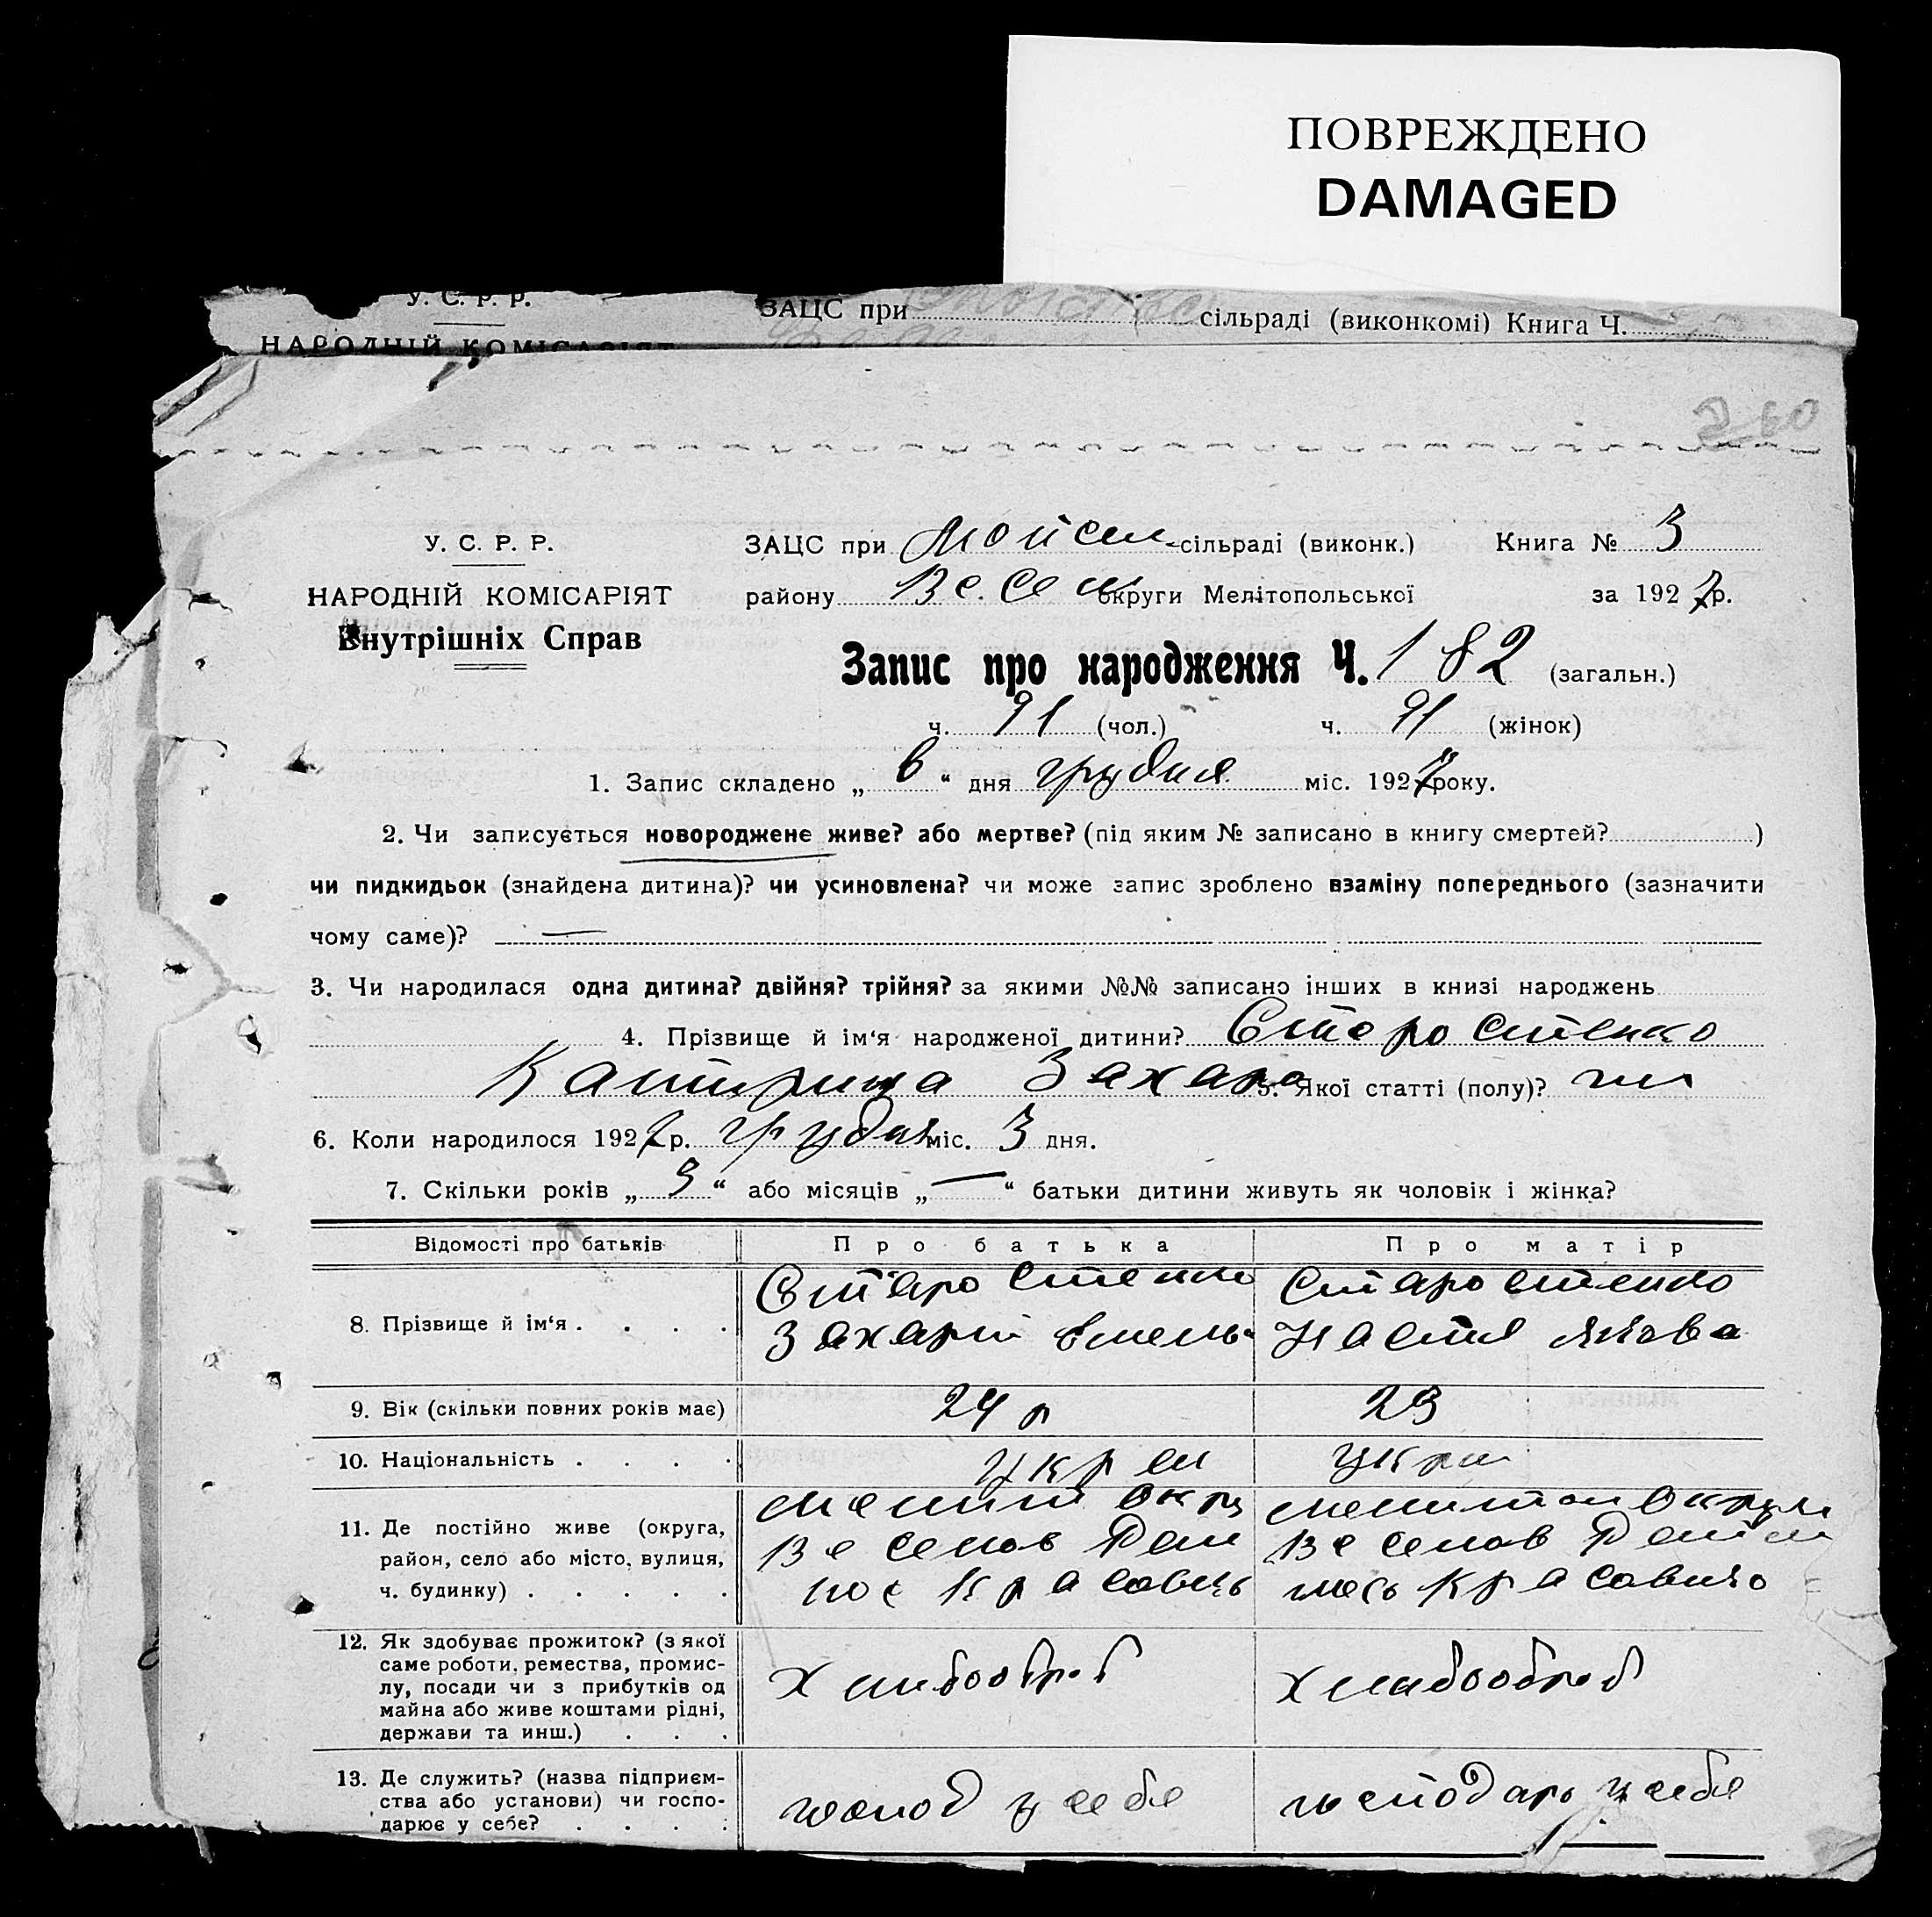 ПОВРЕЖДЕНО
DAMAGED
У. С. Р. Р.
ЗАЦС при сільраді (виконкомі) Книга Ч.
НАРОДНІЙ КОМІСАРІЯТ
260
У. С. Р. Р.
ЗАЦС при Мойсеи сільраді (виконк.) Книга № 3
НАРОДНІЙ КОМІСАРІЯТ
району Весел округи Мелітопольської за 1927 р.
Внутрішніх Справ
Запис про народження Ч. 182 (загальн.)
ч. 91 (чол.) ч. 91 (жінок)
1. Запис складено „ 6 “ дня грудня міс. 1927 року.
2. Чи записується новороджене живе? або мертве? (під яким № записано в книгу смертей? )
чи пидкидьок (знайдена дитина)? чи усиновлена? чи може запис зроблено взаміну попереднього (зазначити
чому саме)? —
3. Чи народилася одна дитина? двійня? трійня? за якими №№ записано інших в книзі народжень
4. Прізвище й ім‘я народженої дитини? Старостенко
Катирина Захаро 5. Якої статті (полу)?
6. Коли народилося 1927 р. грудня міс. 3 дня.
7. Скільки років „ 3 “ або місяців „ — “ батьки дитини живуть як чоловік і жінка?
Відомості про батьків Про батька Про матір
Старостенко Старостенко
8. Прізвище й ім‘я . . . . Захарій Емель Настя Якова
9. Вік (скільки повних років має) 24 р 23
10. Національність . . . . Укр Укр
Мелит окр Мелитоп Округи
11. Де постійно живе (округа,
Веселов Веселов
район, село або місто, вулиця,
ч. будинку) . . . . . пос Красовець Красовець
12. Як здобуває прожиток? (з якої
саме роботи, ремества, промис-
лу, посади чи з прибутків од Хлибооброб Хлибооброб
майна або живе коштами рідні,
держави та инш.) . . .
13. Де служить? (назва підприєм-
ства або установи) чи госпо- господ у себе господарь у себе
дарює у себе? . . . .